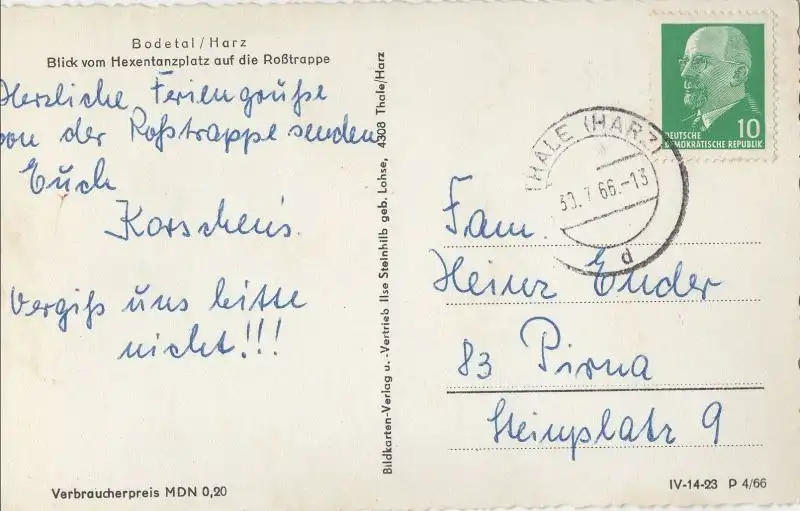 Bodetal/Harz
Blick vom Hexentanzplatz auf die Roßtrappe
Herzliche Feriengrüße
von der Roßtrappe senden
Euch
Korschens.
Vergiß uns bitte
nicht!!!
Verbraucherpreis MDN 0,20
Bildkarten-Verlag u.-Vertrieb Ilse Steinhilb geb. Lohse, 4308 Thale/Harz
DEUTSCHE 10
DEMOKRATISCHE REPUBLIK
THALE (HARZ)
30.7.66.-13
d
Fam.
Heinz Ender
83 Pirna
Steinplatz 9
IV-14-23 P 4/66